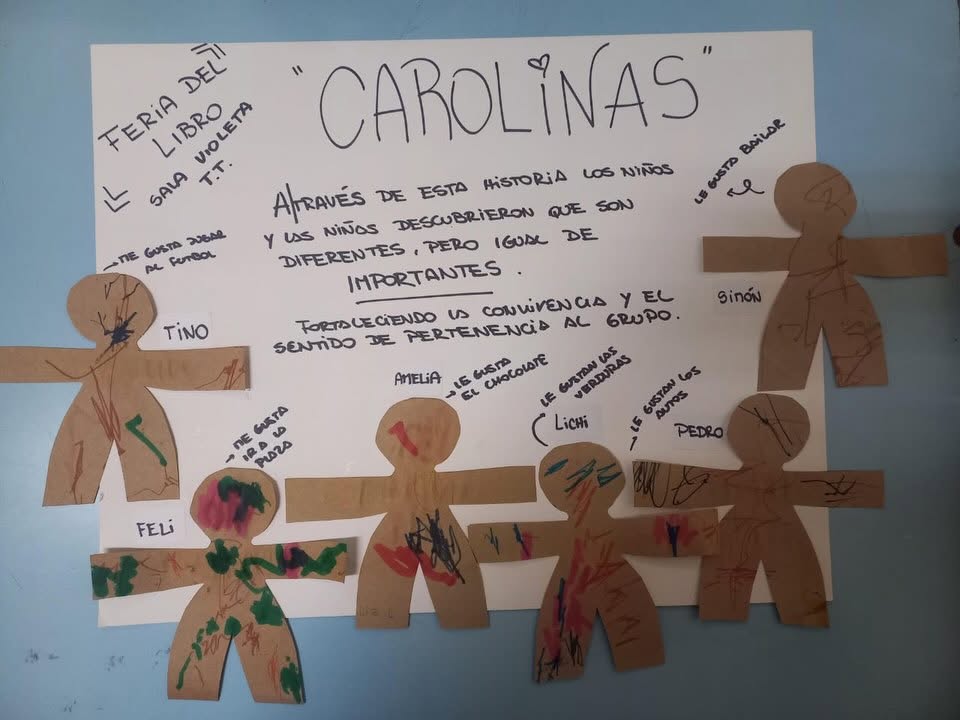 FERIA DEL
LIBRO
SALA VIOLETA
T.T.
"CAROLINAS"
A TRAVÉS DE ESTA HISTORIA LOS NIÑOS
Y LAS NIÑAS DESCUBRIERON QUE SON
DIFERENTES, PERO IGUAL DE
IMPORTANTES.
FORTALECIENDO LA CONVIVENCIA Y EL
SENTIDO DE PERTENENCIA AL GRUPO.
LE GUSTA BAILAR
SIMÓN
ME GUSTA JUGAR
AL FUTBOL
TINO
AMELIA
LE GUSTA
EL CHOCOLATE
LE GUSTAN LAS
VERDURAS
LICHI
LE GUSTAN LOS
AUTOS
PEDRO
ME GUSTA
IR A LA
PLAZA
FELI